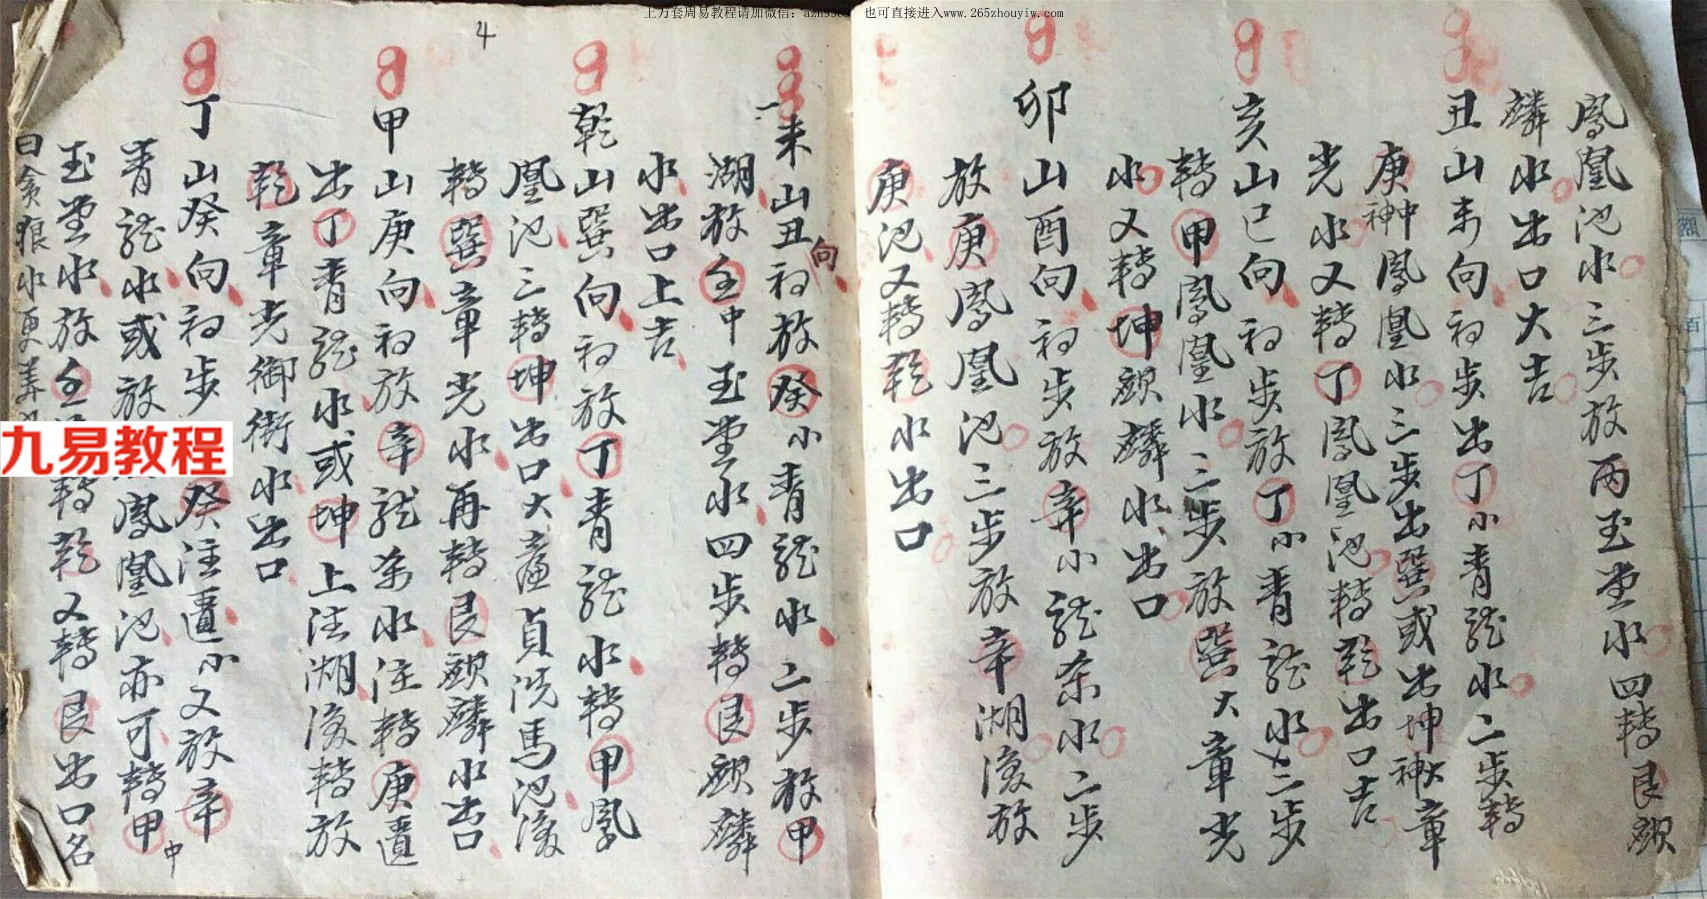 上万套周易教程请加微信：
也可直接进入www.265zhouyiw.com
4
九易教程
鳳凰池水三步放丙玉堂水四轉艮
麟水出口大吉
丑山未向初步出丁小青龍水二步轉
庚神中鳳凰水三步出巽或出坤神大章
光水又轉丁鳳凰池轉乾出口吉
亥山巳向初步放丁小青龍水二步
轉甲鳳凰水三步放巽大章光
水又轉坤麟水出口
卯山酉向初步放辛小龍水二步
放庚鳳凰池三步放辛湖後放
庚池又轉乾水出口
未山丑向初放癸小青龍水二步放甲
湖放壬中玉堂水四步轉艮麟
水出口上吉
乾山巽向初放丁青龍水轉甲鳳
凰池三轉坤出口大廉貞洗馬池後
轉巽章光水再轉艮麟水出口
甲山庚向初放辛龍水注轉庚
出丁青龍水或坤上注湖後轉放
乾章光御街水出口
丁山癸向初步癸注小又放辛
青龍水或放鳳凰池亦可轉甲中
玉堂水放壬轉乾又轉艮出口名
曰貪狼水更